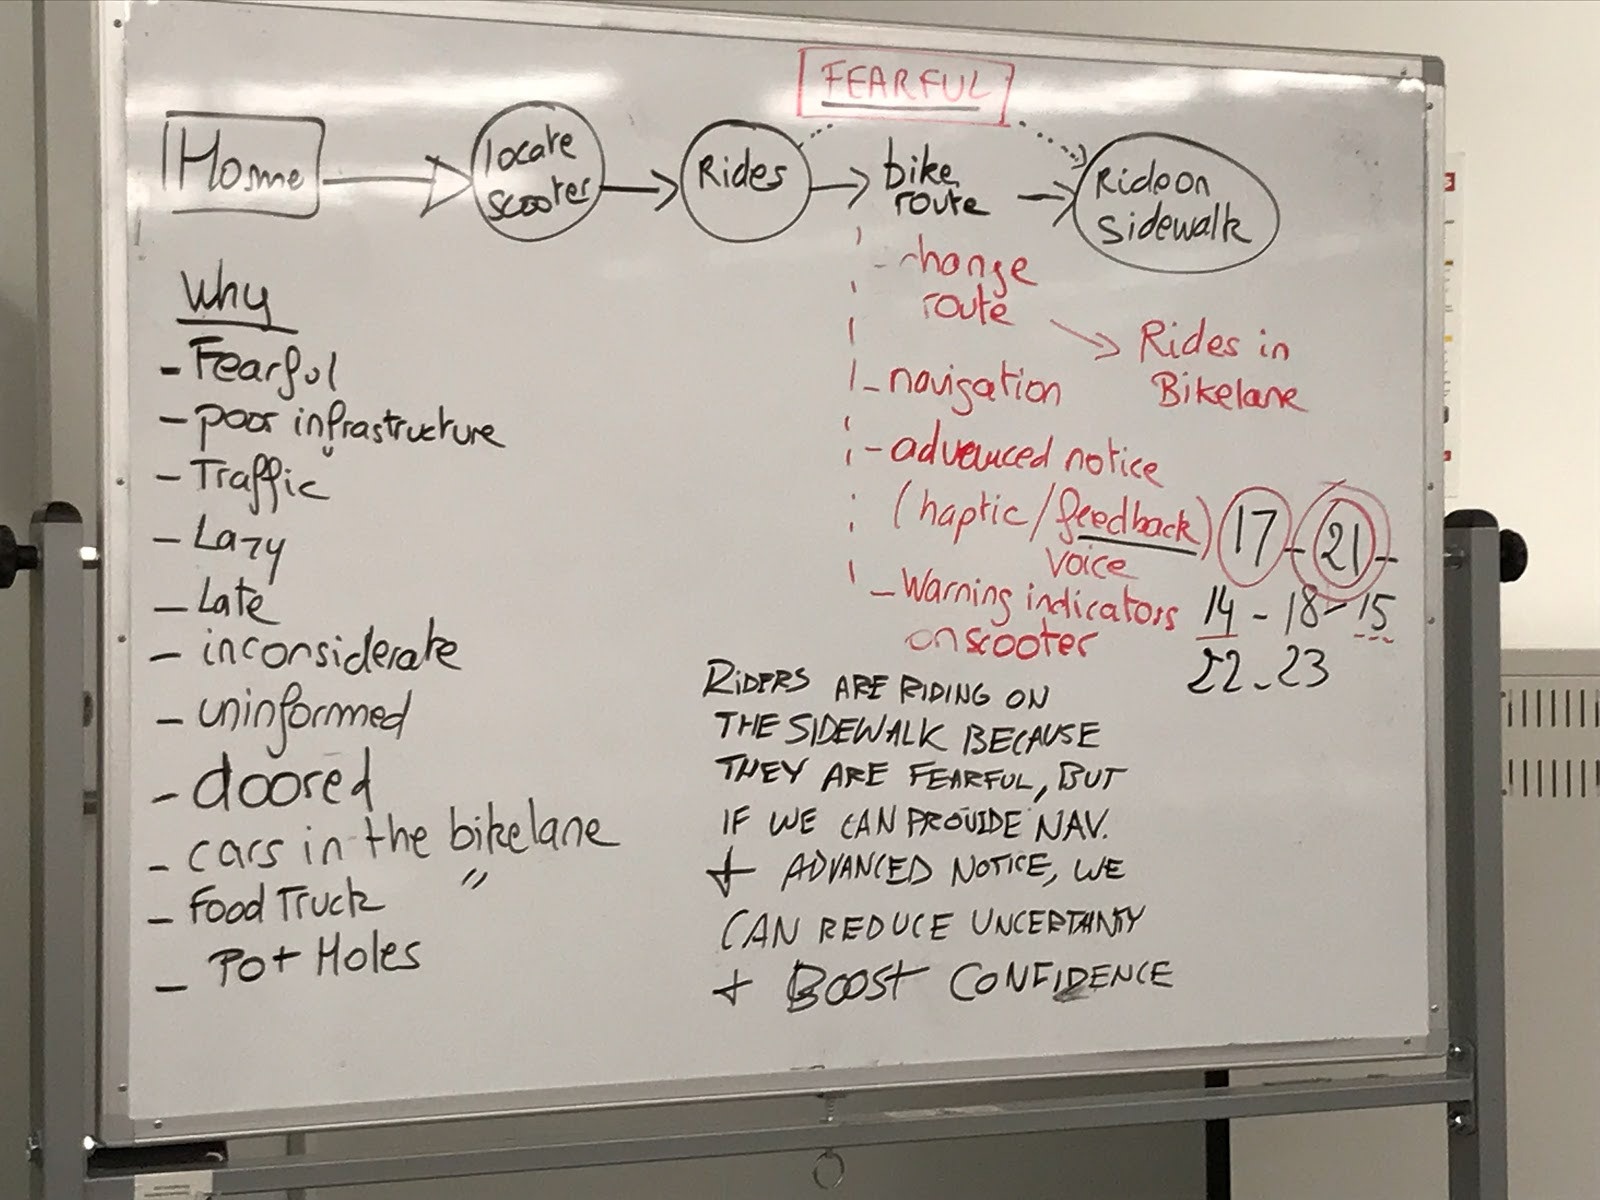 FEARFUL
Home
locate
scooter
Rides
bike
route
Ride on
sidewalk
Why
- Fearful
- poor infrastructure
- Traffic
- Lazy
- Late
- inconsiderate
- uninformed
- doored
- cars in the bikelane
- Food Truck "
- Pot Holes
- change
route
Rides in
Bikelane
- navigation
- advanced notice
(haptic/feedback)
voice
- Warning indicators
on scooter
17 - 21 -
14 - 18 - 15
22 - 23
RIDERS ARE RIDING ON
THE SIDEWALK BECAUSE
THEY ARE FEARFUL, BUT
IF WE CAN PROVIDE NAV.
+ ADVANCED NOTICE, WE
CAN REDUCE UNCERTAINTY
+ BOOST CONFIDENCE